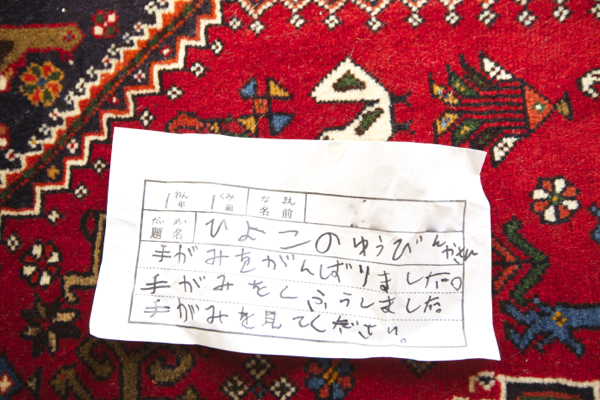 ねん くみ な まえ
1年 1組 名前
だい めい
題名 ひよこのゆうびんやさん
手がみをがんばりました。
手がみをくふうしました。
手がみを見てください。